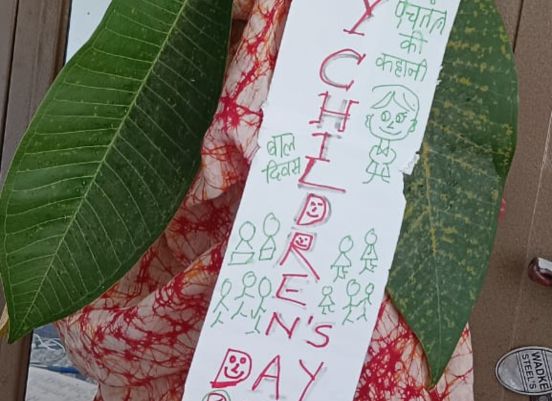 Y
पंचतंत्र
की
कहानी
CHILDREN'S
बाल
दिवस
DAY
WADKE
STEEL'S